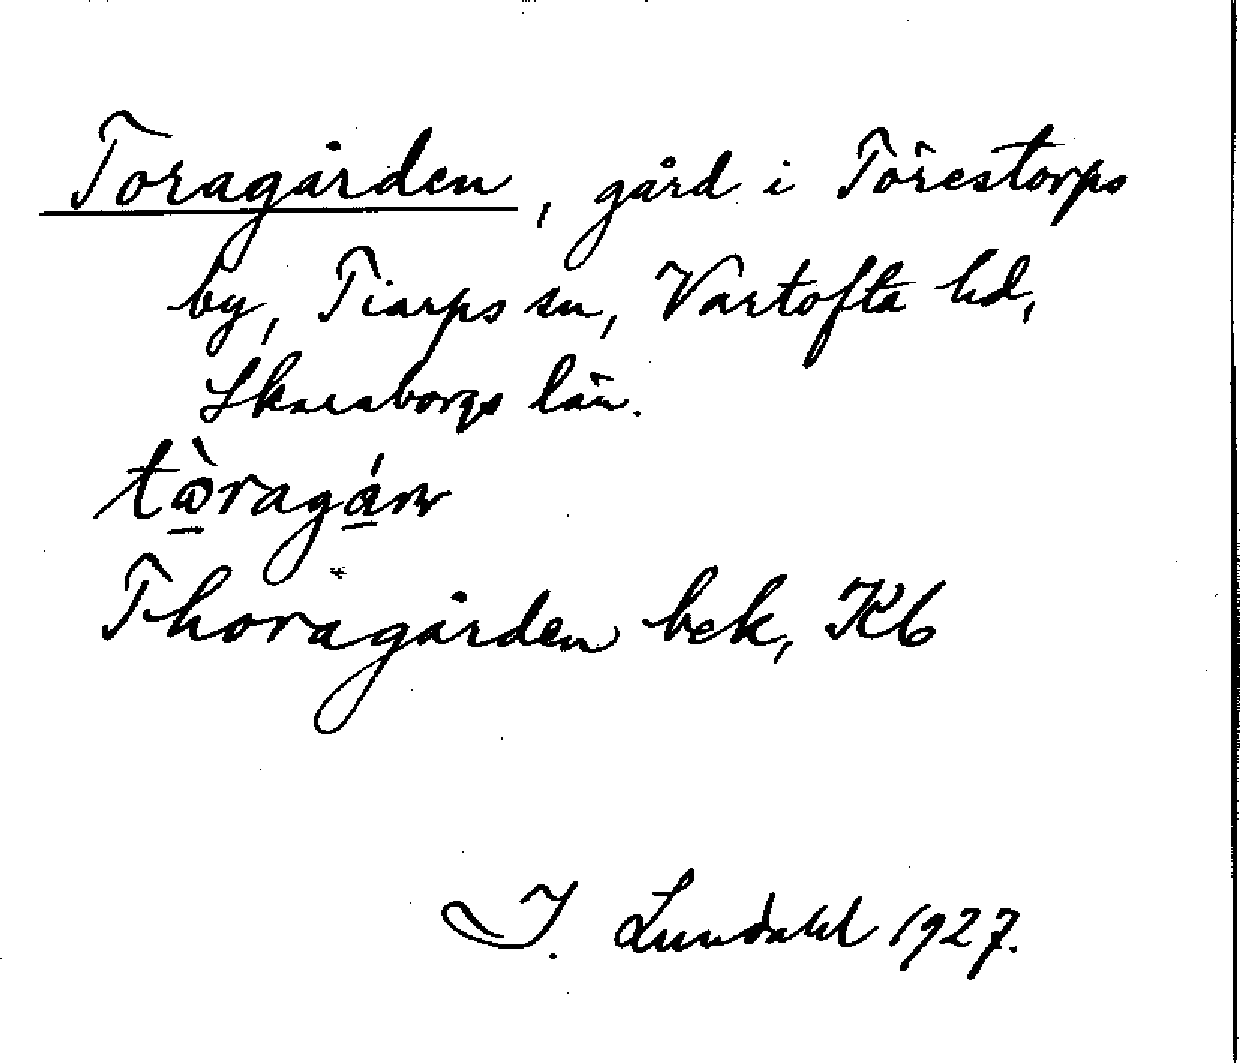 Toragården, gård i Törestorps
by, Tiarps sn, Vartofta hd,
Skaraborgs län.
tòragán
Thoragården bek, Kb
I. Lundahl 1927.